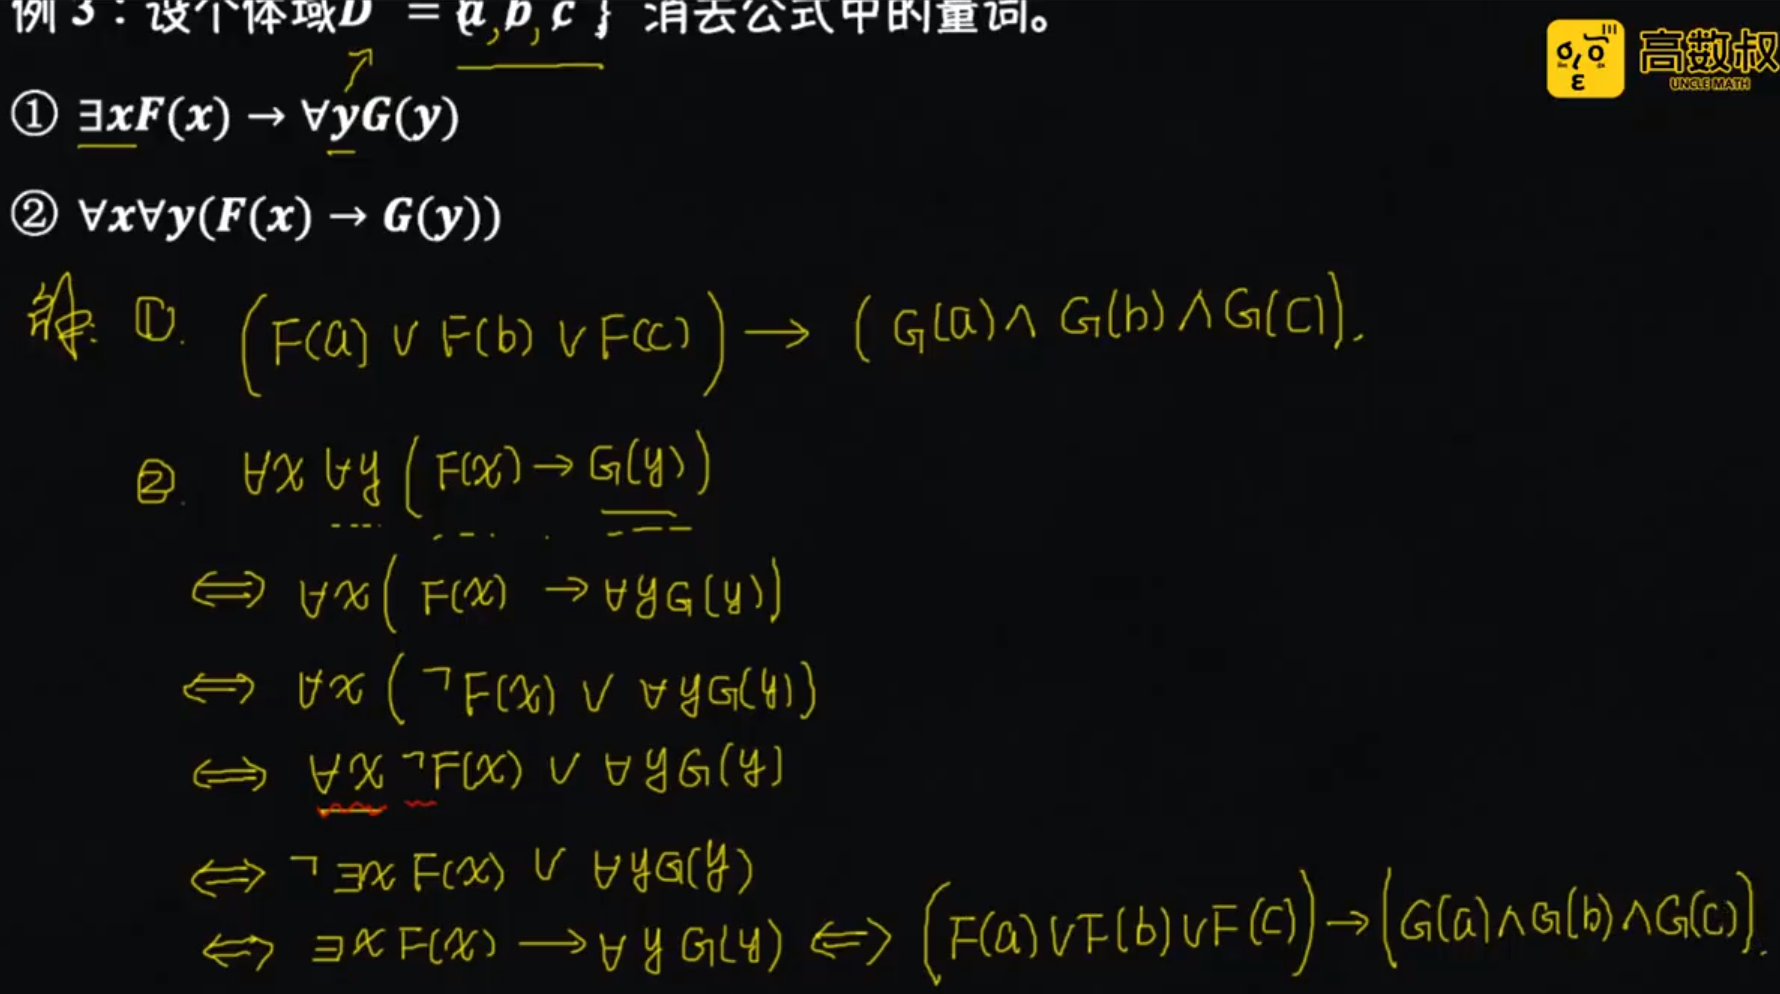 例 3：设个体域D = {a, b, c} 消去公式中的量词。
高数叔
UNCLE MATH
① ∃xF(x) → ∀yG(y)
② ∀x∀y(F(x) → G(y))
解: ①. (F(a) ∨ F(b) ∨ F(c)) → (G(a) ∧ G(b) ∧ G(c)).
②. ∀x ∀y (F(x) → G(y))
⇔ ∀x (F(x) → ∀y G(y))
⇔ ∀x (¬F(x) ∨ ∀y G(y))
⇔ ∀x ¬F(x) ∨ ∀y G(y)
⇔ ¬∃x F(x) ∨ ∀y G(y)
⇔ ∃x F(x) → ∀y G(y) ⇔ (F(a) ∨ F(b) ∨ F(c)) → (G(a) ∧ G(b) ∧ G(c)).